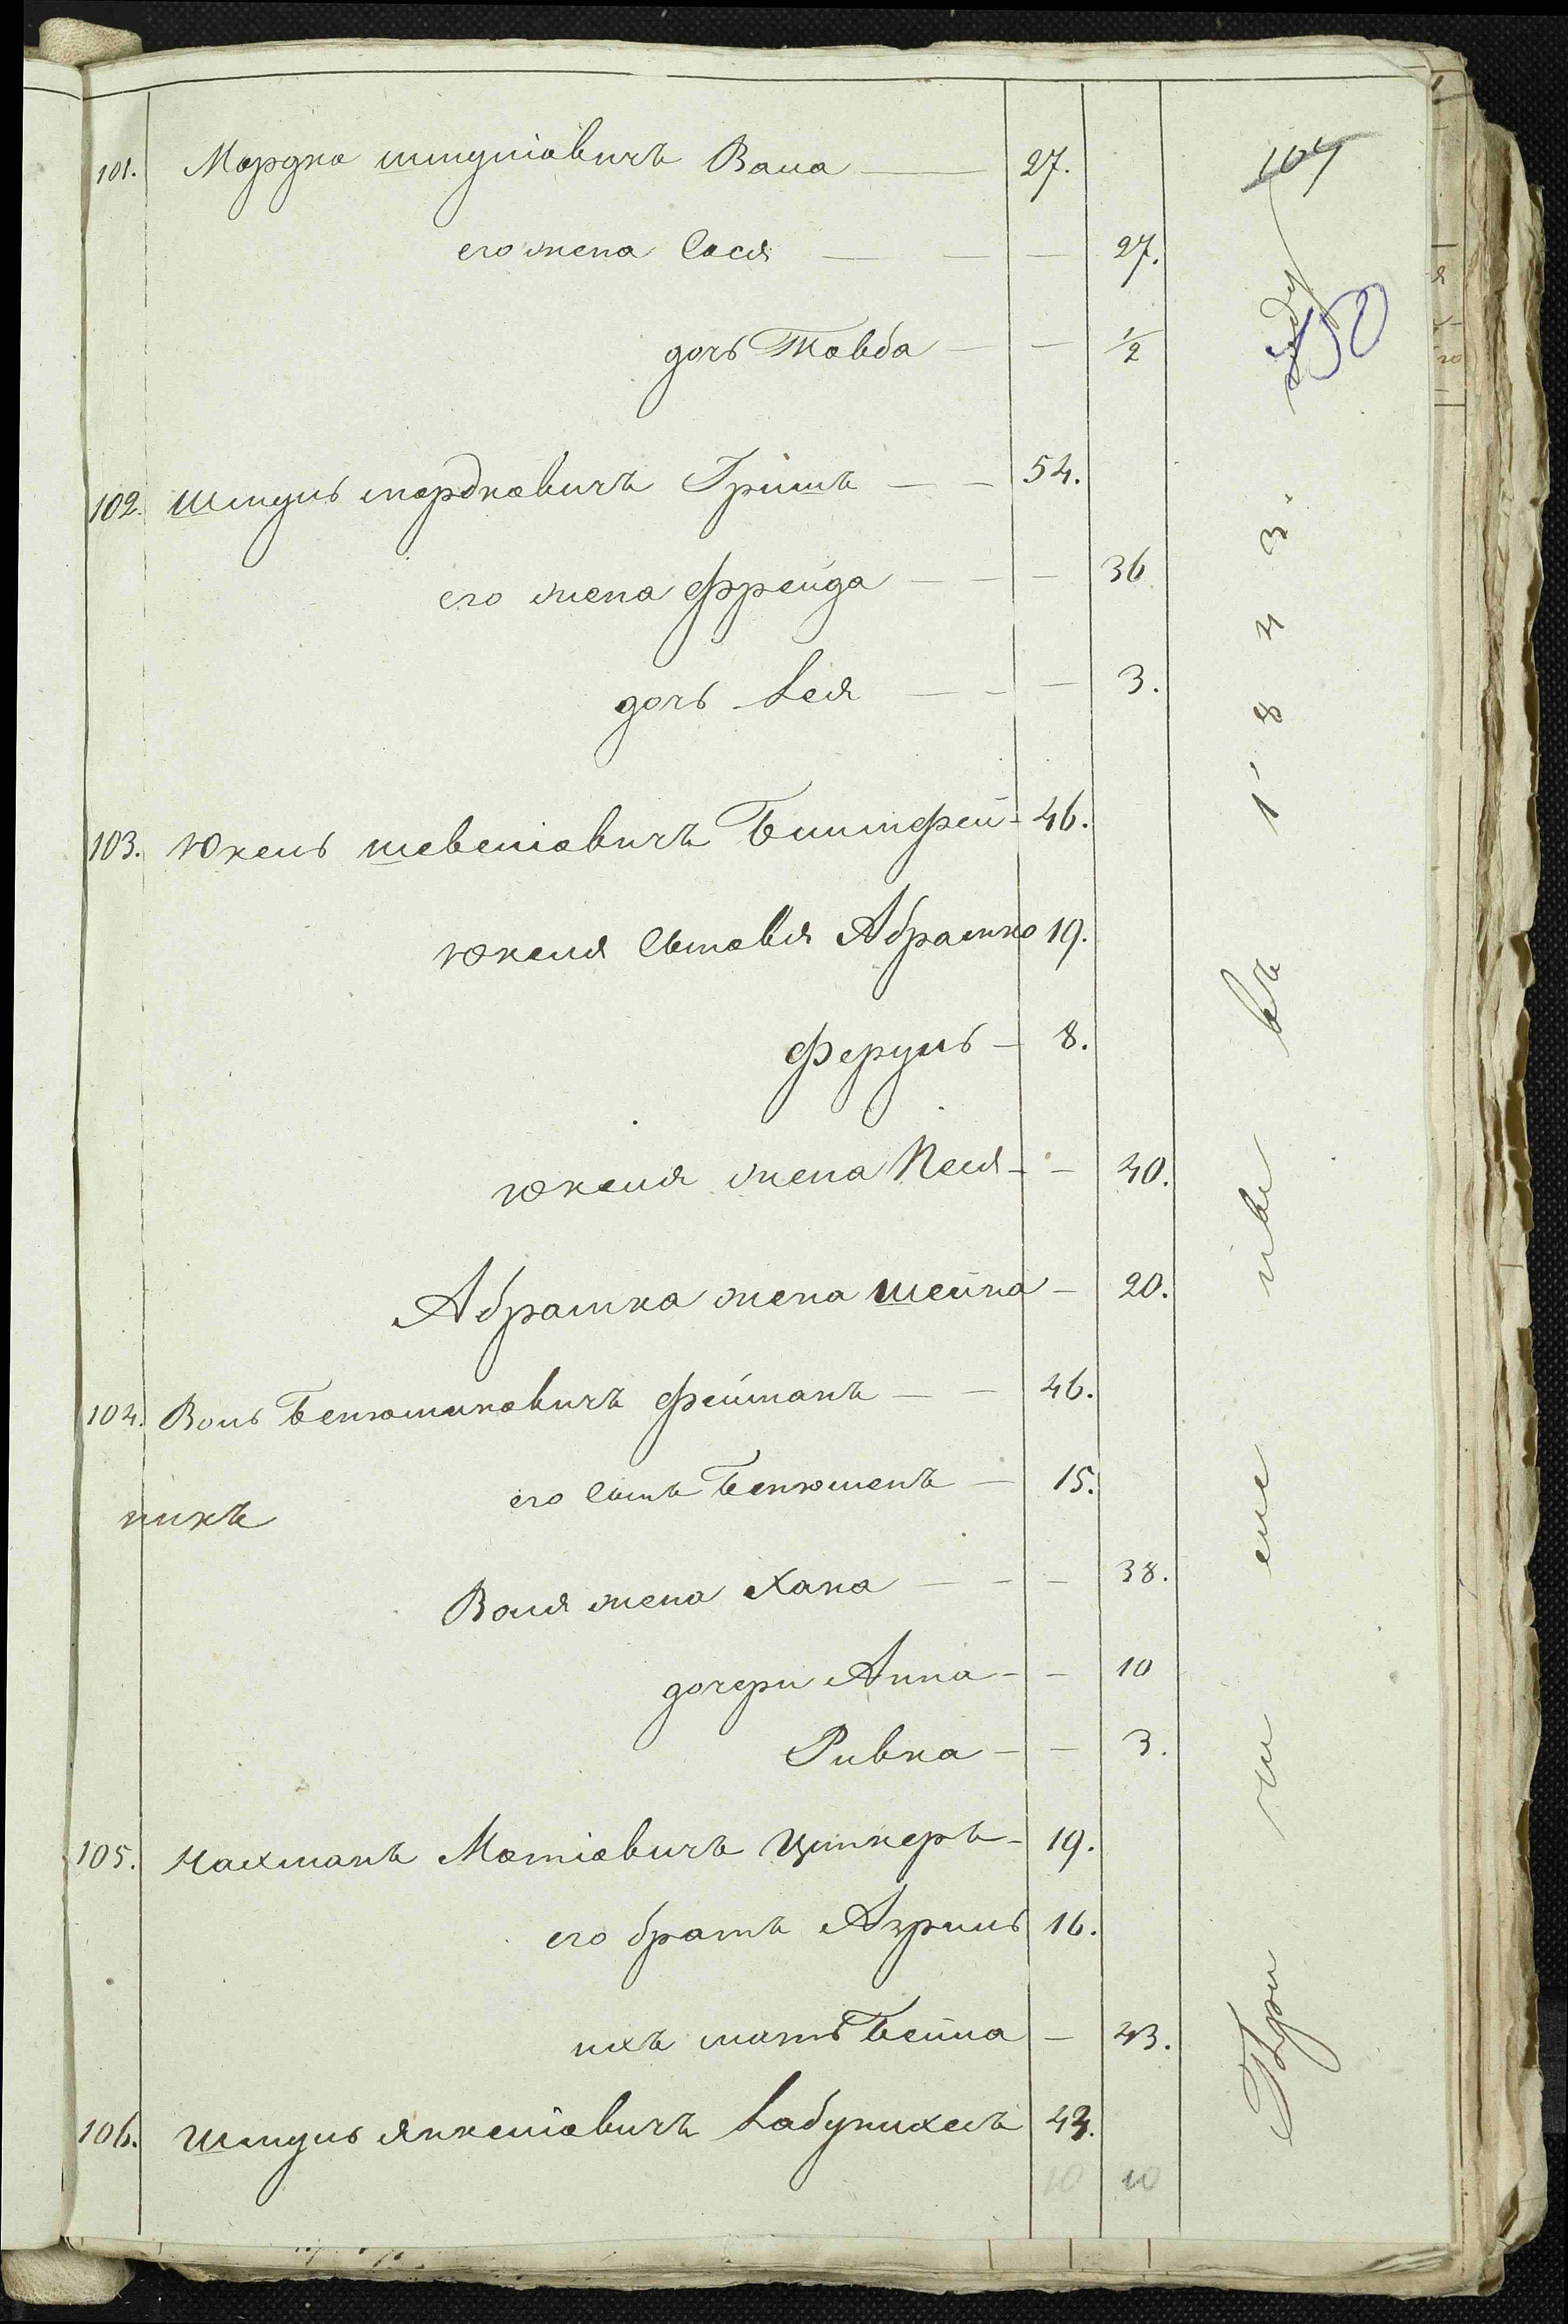 101. Мордко Шмулiовичъ Вала — 27.
его жена Сося — — — 27.
дочь Товба — — 1/2
102. Шмуль Мордковичъ Гришъ — — 54.
его жена Фрейда — — — 36
дочь Лея — — — 3.
103. Юкель Шевелiовичъ Билифей - 46.
Юкеля сыновья Абрамко 19.
Фероуль — 8.
Юкеля жена Песя - — 40.
Абрамка жена Шейна — 20.
104. Воль Бенюминовичъ Фейманъ — — 46.
его сынъ Бенюменъ — 15.
никъ
Воля жена Хана — — — 38.
дочери Анна - — 10
Ривка — — 3.
105. Нахманъ Мотiовичъ Цимперъ - 19.
его братъ Азриль 16.
ихъ мать Бейла — 43.
106. Шмуль Янкелiовичъ Лабунихесъ 43.
10 10
При чи сле нiе въ 1 8 4 3 году
104
50